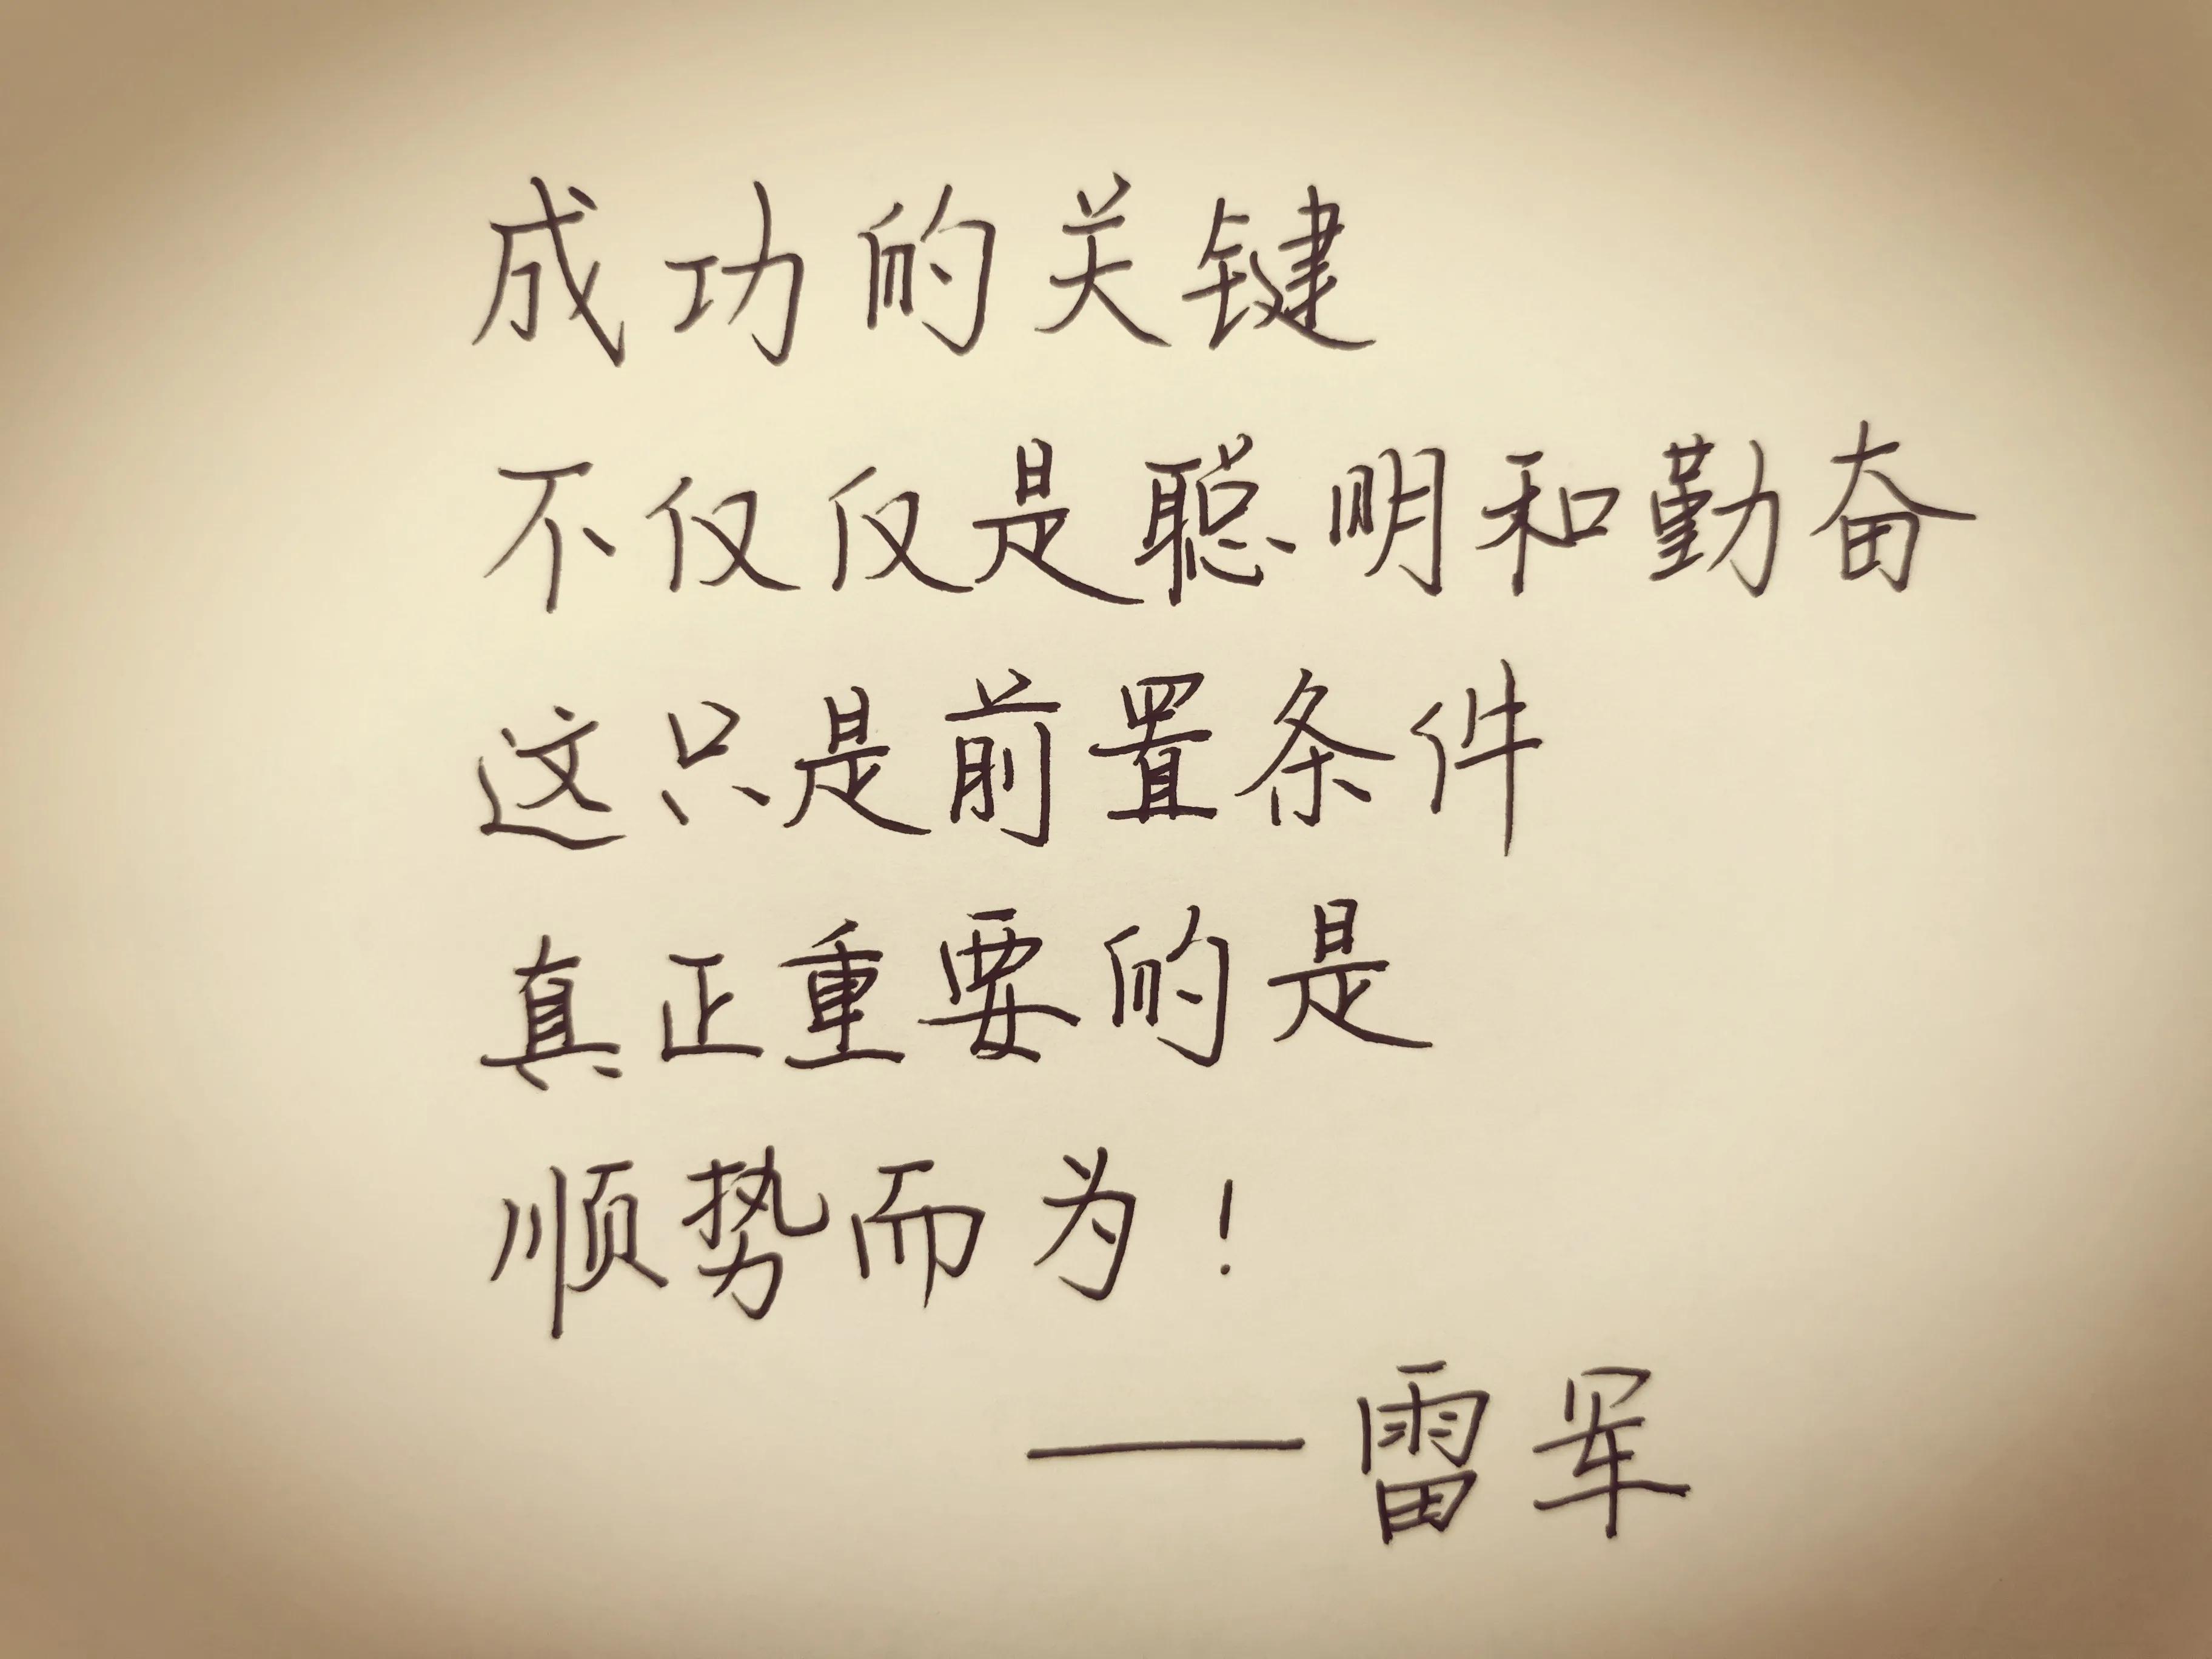 成功的关键
不仅仅是聪明和勤奋
这只是前置条件
真正重要的是
顺势而为！
——雷军